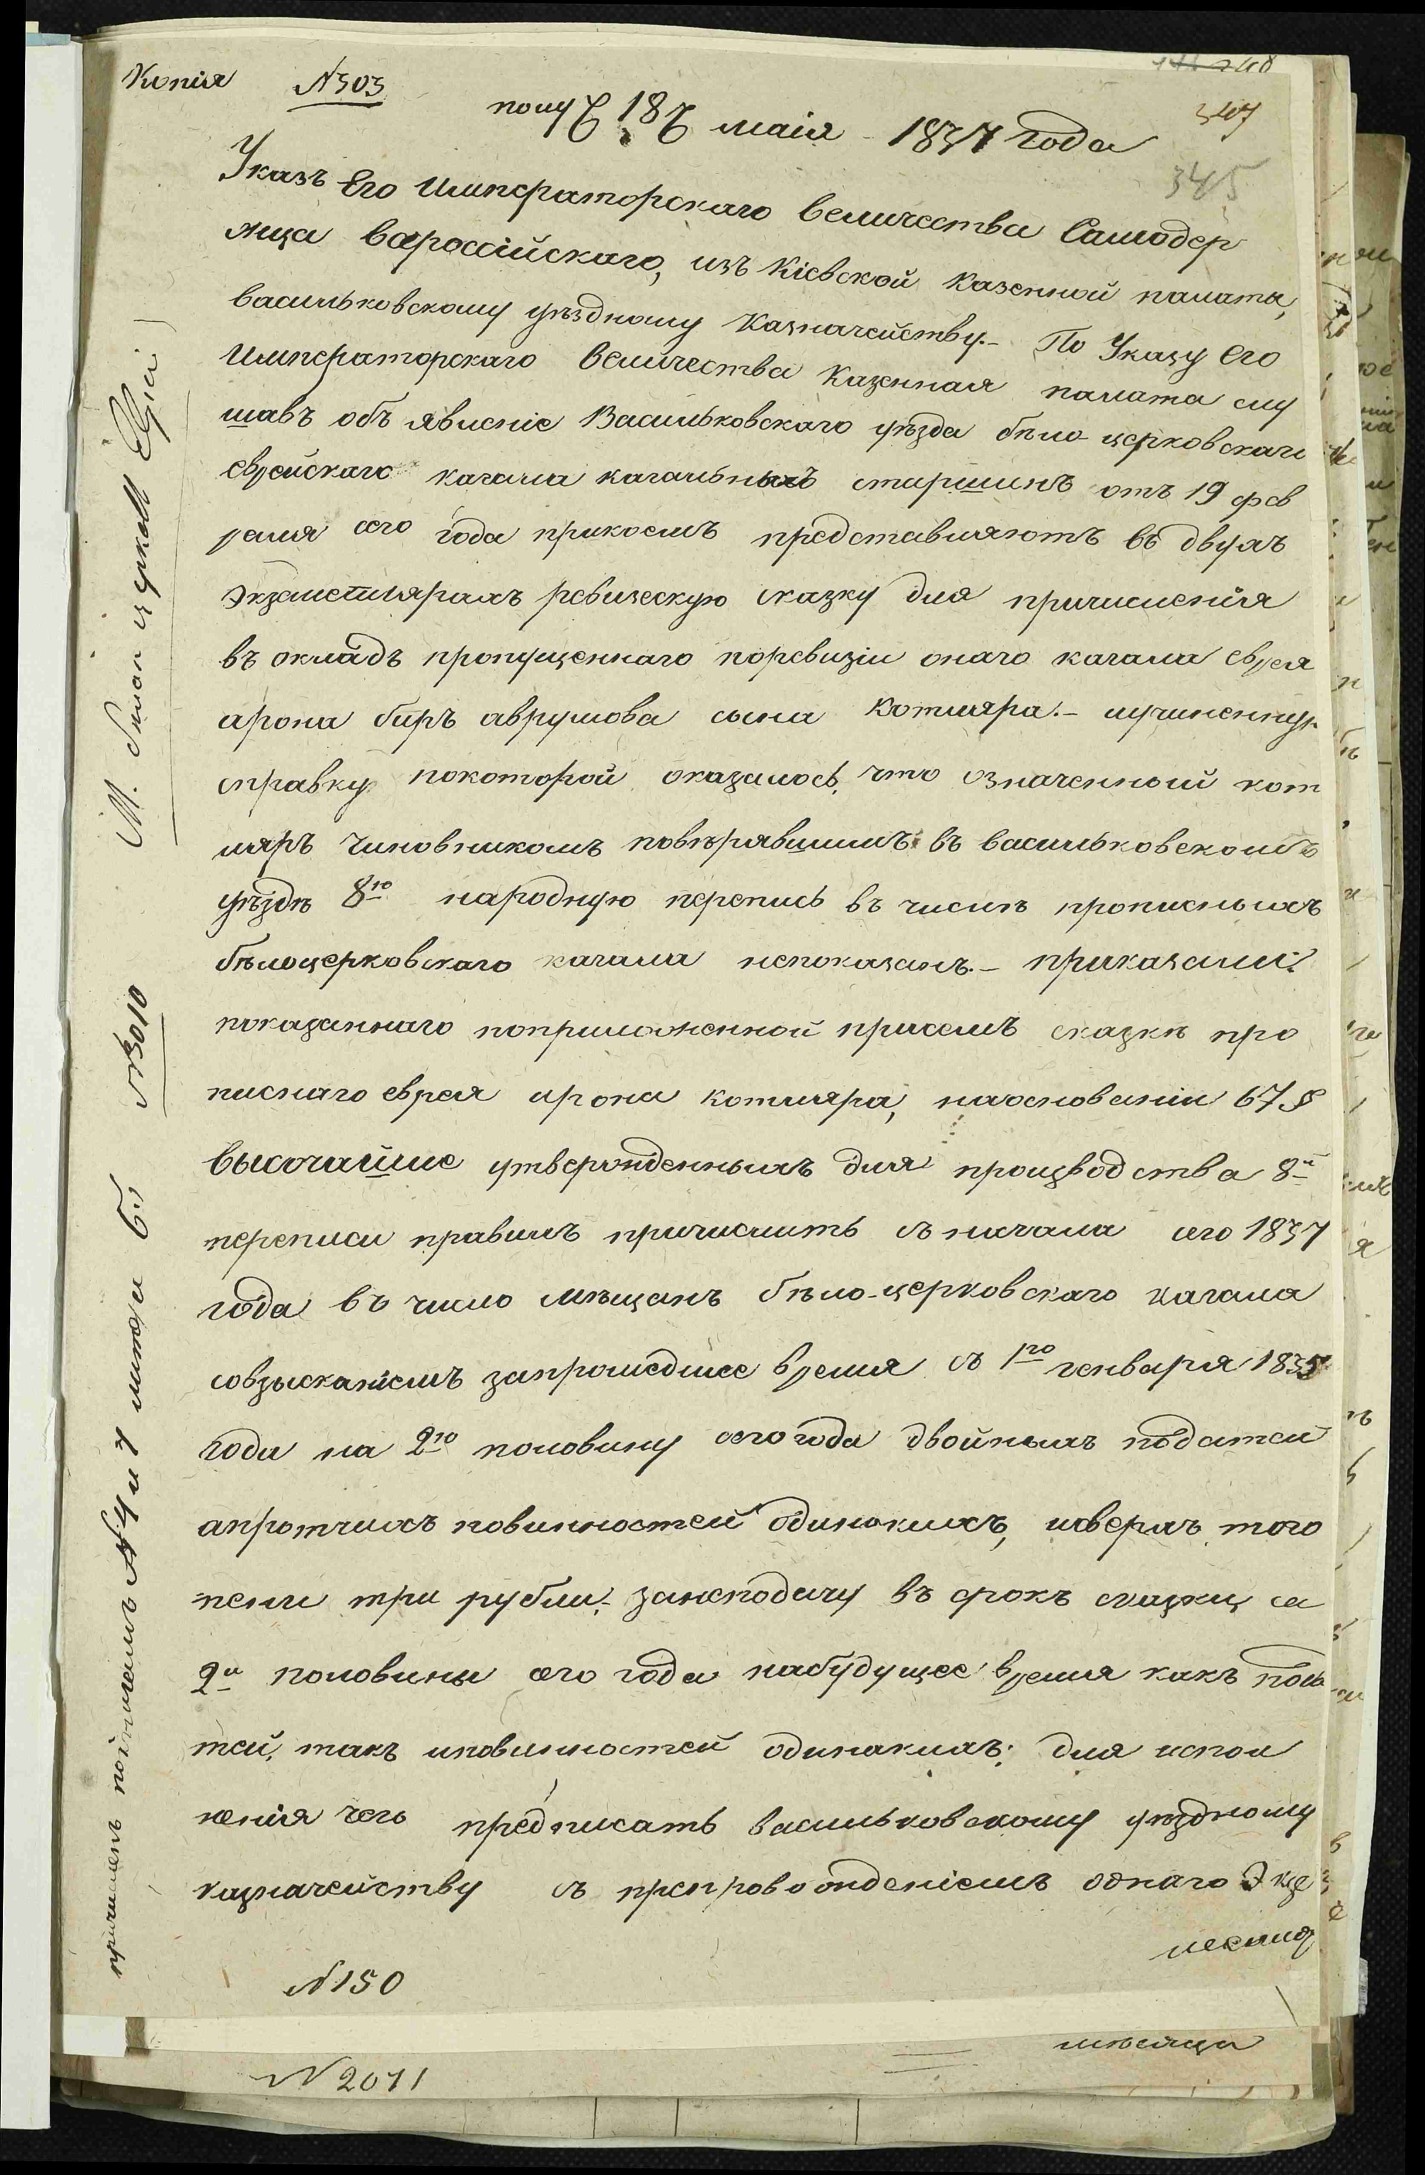 Копія № 303
348
347
345
получ. 18 маія 1837 года
Указъ Его Императорскаго Величества Самодер
жца Всероссійскаго, изъ Кіевской Казенной палаты,
Васильковскому уѣздному Казначейству.- По Указу Его
Императорскаго Величества Казенная палата слу
шавъ объявленіе Васильковскаго уѣзда бѣло-церковскаго
еврейскаго кагала кагальныхъ старшинъ отъ 19 фев
раля сего года прикоемъ представляютъ въ двухъ
Экземплярахъ ревизскую сказку для причисленія
въ окладъ пропущеннаго поревизіи онаго кагала еврея
арона беръ аврумова сына Котляра.- иучиненную
справку покоторой оказалось, что означенный кот
ляръ Чиновникомъ повѣрявшимъ въ васильковскомъ
уѣздѣ 8ю народную перепись въ числѣ прописныхъ
бѣлоцерковскаго кагала непоказанъ.- приказали:
показаннаго поприложенной присемъ сказкѣ про
писнаго еврея арона котляра, наоснованіи 67 §
высочайше утвержденныхъ для производства 8й
переписи правилъ причислить съ начала сего 1837
года въ число мѣщанъ бѣло-церковскаго кагала
совзысканіемъ запрошедшее время съ 1го генваря 1835
года на 2ю половину сего года двойныхъ податей
апротчихъ повинностей одинокихъ, исверхъ того
пени три рубли, занеподачу въ срокъ сказки, са
2й половины сего года набудущее время какъ пода
тей, такъ иповинностей одинакихъ; для испол
ненія чего предписать васильковскому уѣздному
казначейству съ препровожденіемъ одного Экзе
№ 150
№ 2071
мѣсяца
причисленъ № 4 и 7
№ 3010
М.